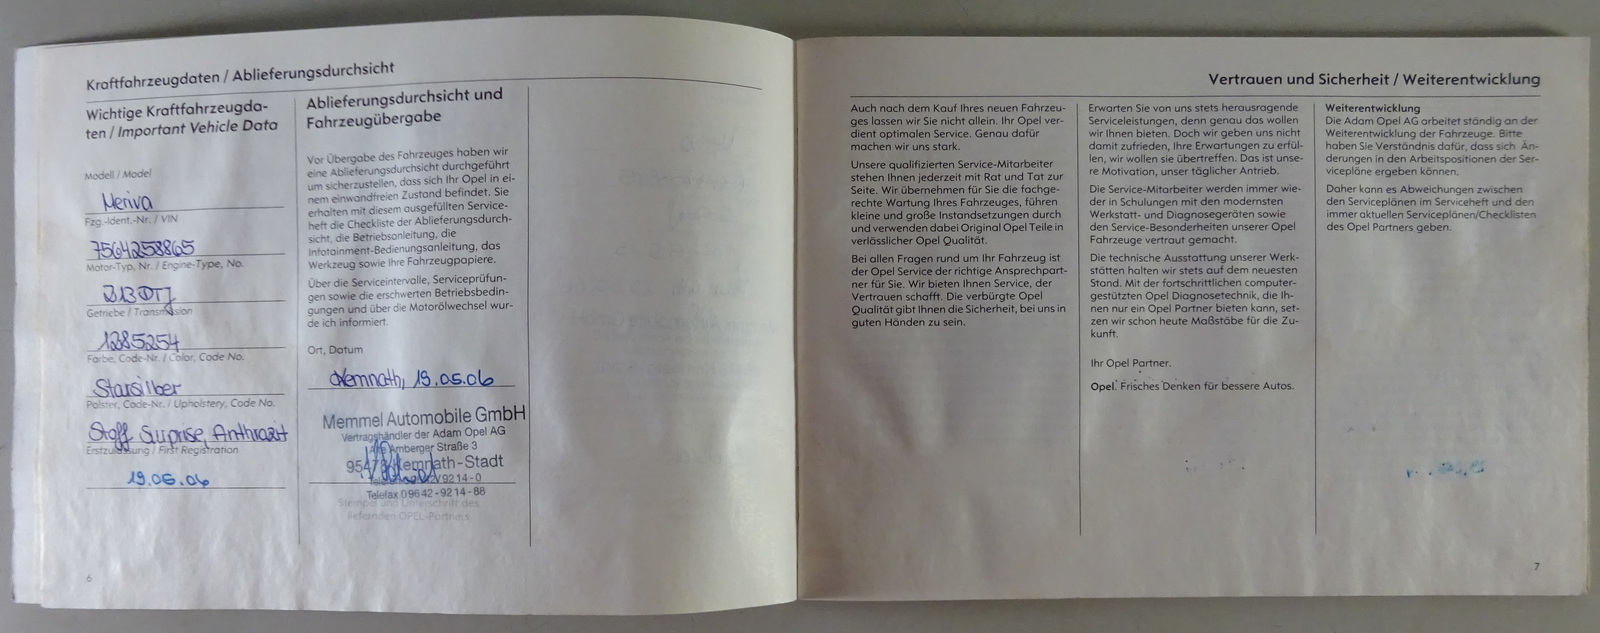 Kraftfahrzeugdaten / Ablieferungsdurchsicht
Wichtige Kraftfahrzeugda-
ten / Important Vehicle Data
Modell / Model
Meriva
Fzg.-Ident.-Nr. / VIN
7564258865
Motor-Typ, Nr. / Engine-Type, No.
Z13DTJ
Getriebe / Transmission
1285254
Farbe, Code-Nr. / Color, Code No.
Starsilber
Polster, Code-Nr. / Upholstery, Code No.
Stoff Suprise, Anthrazit
Erstzulassung / First Registration
19.05.06
6
Ablieferungsdurchsicht und
Fahrzeugübergabe
Vor Übergabe des Fahrzeuges haben wir
eine Ablieferungsdurchsicht durchgeführt
um sicherzustellen, dass sich Ihr Opel in ei-
nem einwandfreien Zustand befindet. Sie
erhalten mit diesem ausgefüllten Service-
heft die Checkliste der Ablieferungsdurch-
sicht, die Betriebsanleitung, die
Infotainment-Bedienungsanleitung, das
Werkzeug sowie Ihre Fahrzeugpapiere.
Über die Serviceintervalle, Serviceprüfun-
gen sowie die erschwerten Betriebsbedin-
gungen und über die Motorölwechsel wur-
de ich informiert.
Ort, Datum
Kemnath, 19.05.06
Memmel Automobile GmbH
Vertragshändler der Adam Opel AG
Amberger Straße 3
Kemnath-Stadt
Telefax 09642-9214-88
Stempel und Unterschrift des
liefernden OPEL-Partners
Vertrauen und Sicherheit / Weiterentwicklung
Auch nach dem Kauf Ihres neuen Fahrzeu-
ges lassen wir Sie nicht allein. Ihr Opel ver-
dient optimalen Service. Genau dafür
machen wir uns stark.
Unsere qualifizierten Service-Mitarbeiter
stehen Ihnen jederzeit mit Rat und Tat zur
Seite. Wir übernehmen für Sie die fachge-
rechte Wartung Ihres Fahrzeuges, führen
kleine und große Instandsetzungen durch
und verwenden dabei Original Opel Teile in
verlässlicher Opel Qualität.
Bei allen Fragen rund um Ihr Fahrzeug ist
der Opel Service der richtige Ansprechpart-
ner für Sie. Wir bieten Ihnen Service, der
Vertrauen schafft. Die verbürgte Opel
Qualität gibt Ihnen die Sicherheit, bei uns in
guten Händen zu sein.
Erwarten Sie von uns stets herausragende
Serviceleistungen, denn genau das wollen
wir Ihnen bieten. Doch wir geben uns nicht
damit zufrieden, Ihre Erwartungen zu erfül-
len, wir wollen sie übertreffen. Das ist unse-
re Motivation, unser täglicher Antrieb.
Die Service-Mitarbeiter werden immer wie-
der in Schulungen mit den modernsten
Werkstatt- und Diagnosegeräten sowie
den Service-Besonderheiten unserer Opel
Fahrzeuge vertraut gemacht.
Die technische Ausstattung unserer Werk-
stätten halten wir stets auf dem neuesten
Stand. Mit der fortschrittlichen computer-
gestützten Opel Diagnosetechnik, die Ih-
nen nur ein Opel Partner bieten kann, set-
zen wir schon heute Maßstäbe für die Zu-
kunft.
Ihr Opel Partner.
Opel. Frisches Denken für bessere Autos.
Weiterentwicklung
Die Adam Opel AG arbeitet ständig an der
Weiterentwicklung der Fahrzeuge. Bitte
haben Sie Verständnis dafür, dass sich Än-
derungen in den Arbeitspositionen der Ser-
vicepläne ergeben können.
Daher kann es Abweichungen zwischen
den Serviceplänen im Serviceheft und den
immer aktuellen Serviceplänen/Checklisten
des Opel Partners geben.
7